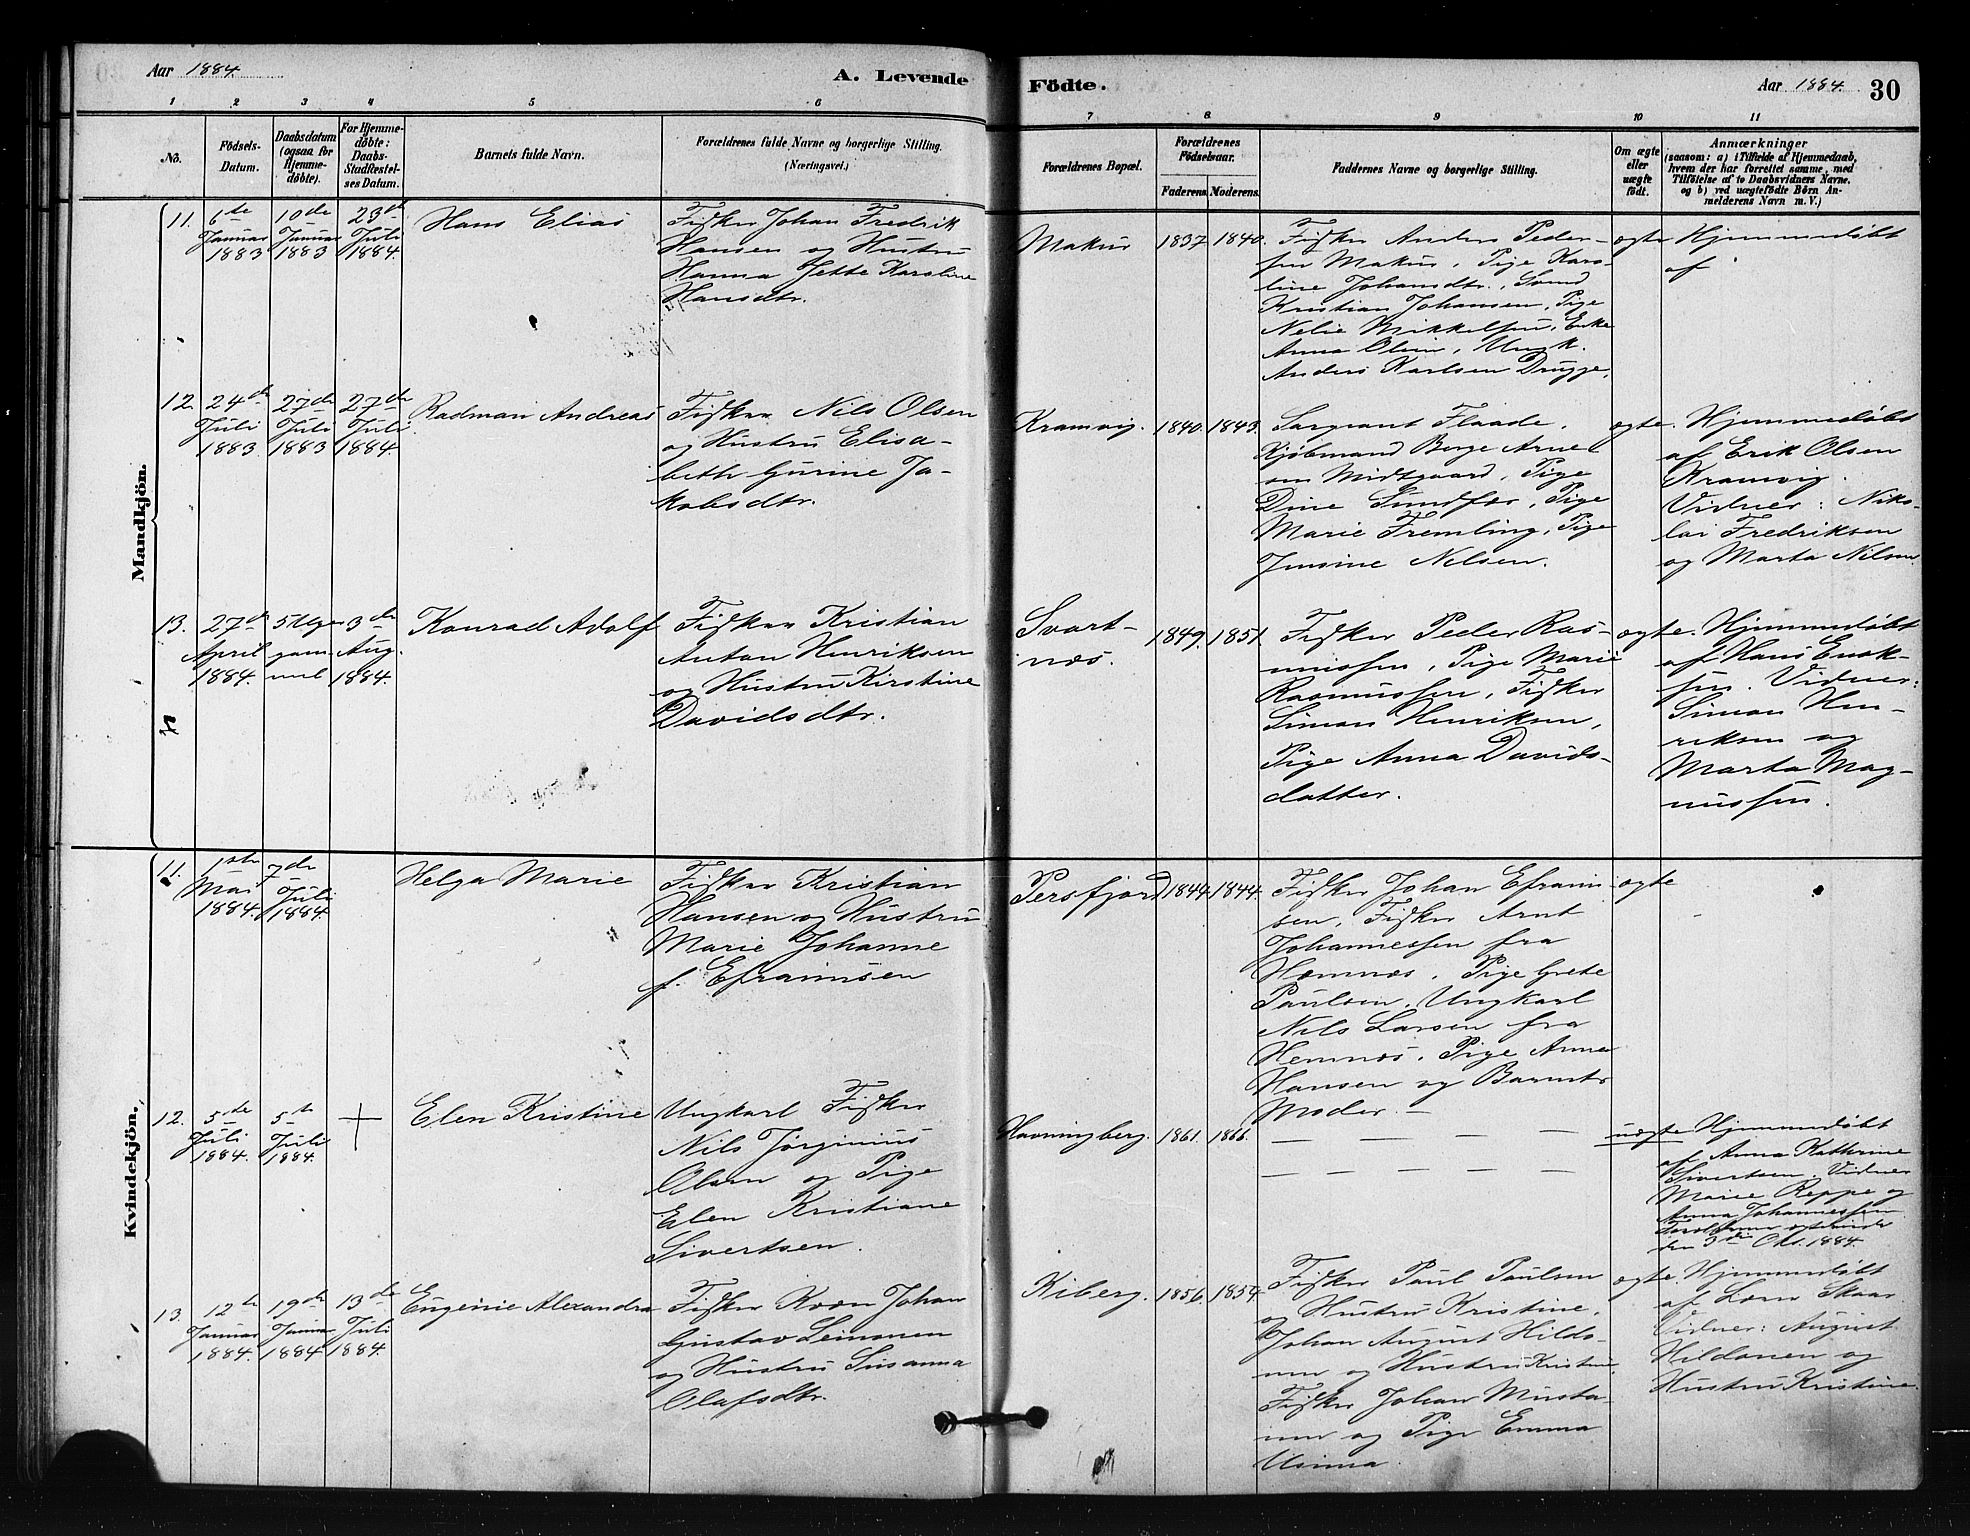 Aar 1884.
A. Levende
Födte.
Aar 1884.
30
1 2 3 4 5 6 7 8 9 10 11
No.
Födsels-
Datum.
Daabsdatum
(ogsaa for
Hjemme-
døbte).
For Hjemme-
döbte:
Daabs-
Stadfæstel-
ses Datum.
Barnets fulde Navn.
Forældrenes fulde Navne og borgerlige Stilling.
(Næringsvei.)
Forældrenes Bopæl.
Forældrenes
Födselsaar.
Faderens. Moderens.
Faddernes Navne og borgerlige Stilling.
Om ægte
eller
uægte
födt.
Anmærkninger
(saasom: a) i Tilfælde af Hjemmedaab,
hvem der har forrettet samme, med
Tilföielse af to Daabsvidners Navne.
og b) ved uægtefödte Börn An-
melderens Navn m. V.)
Mandkjön.
11.
6te
Januar
1883
10de
Januar
1883
23de
Juli
1884.
Hans Elias
Fisker Johan Fredrik
Hansen og Hustru
Hanna Jette Karoline
Hansdtr.
Makur
1837
1840.
Fisker Anders Peder-
sen Makur, Pige Karo-
line Johansdtr., Svend
Kristian Johansen, Pige
Nelie Mikkelsen, Enke
Anna Olsen, Ungk.
Anders Karlsen Drugge.
ægte
Hjemmedøbt
af
12.
24de
Juli
1883
27de
Juli
1883
27de
Juli
1884.
Radman Andreas
Fisker Nils Olsen
og Hustru Elisa-
beth Gurine Ja-
kobsdtr.
Kramvig.
1840.
1843.
Sargeant Flaade,
Kjøbmand Borge Arne
sen Midtgaard, Pige
Dine Sundfær, Pige
Marie Fremling, Pige
Jensine Nelsen.
ægte.
Hjemmedøbt
af Erik Olsen
Kramvig.
Vidner: Niko-
lai Fredriksen
og Marta Nilsen.
13.
27de
April
1884.
5 Uger
gam-
mel
3de
Aug.
1884.
Konrad Adolf
Fisker Kristian
Anton Henriksen
og Hustru Kirstine
Davidsdtr.
Svart-
næs.
1849.
1851.
Fisker Peder Ras-
mussen, Pige Marie
Rasmussen, Fisker
Simon Henriksen,
Pige Anna Davids-
datter.
ægte.
Hjemmedøbt
af Hans Enok-
sen. Vidner:
Simon Hen-
riksen og
Marta Mag-
nussen.
Kvindekjön.
11.
1ste
Mai
1884.
7de
Juli
1884.
Helga Marie
Fisker Kristian
Hansen og Hustru
Marie Johanne
f. Efraimsen
Persfjord
1844.
1844.
Fisker Johan Efraim-
sen, Fisker Arnt
Johannessen fra
Hemnæs, Pige Grete
Paulsen, Ungkarl
Nils Larsen fra
Hemnæs, Pige Anna
Hansen og Barnets
Moder. –
ægte
12.
5de
Juli
1884.
5te
Juli
1884.
Elen Kristine
Ungkarl Fisker
Nils Jørginius
Olsen og Pige
Elen Kristiane
Sivertsen.
Havningberg.
1861.
1866.
– – – –
– – – –
uægte
Hjemmedøbt
af Anna Kathrine
Sivertsen, Vidner
Marie Reppe og
Anna Johannessen
den 3die Okt. 1884.
13.
12te
Januar
1884.
19de
Januar
1884
13de
Juli
1884.
Eugenie Alexandra
Fisker Kvæn Johan
Gustav Leinonen
og Hustru Susanna
Olafsdtr.
Kiberg.
1856.
1854.
Fisker Paul Paulsen
og Hustru Kristine,
Johan August Hildo-
nen og Hustru Kristine
Fisker Johan Musta-
nen og Pige Emma
Usima.
ægte.
Hjemmedøbt
af Lærer Skaar
Vidner: August
Hildonen og
Hustru Kristine.